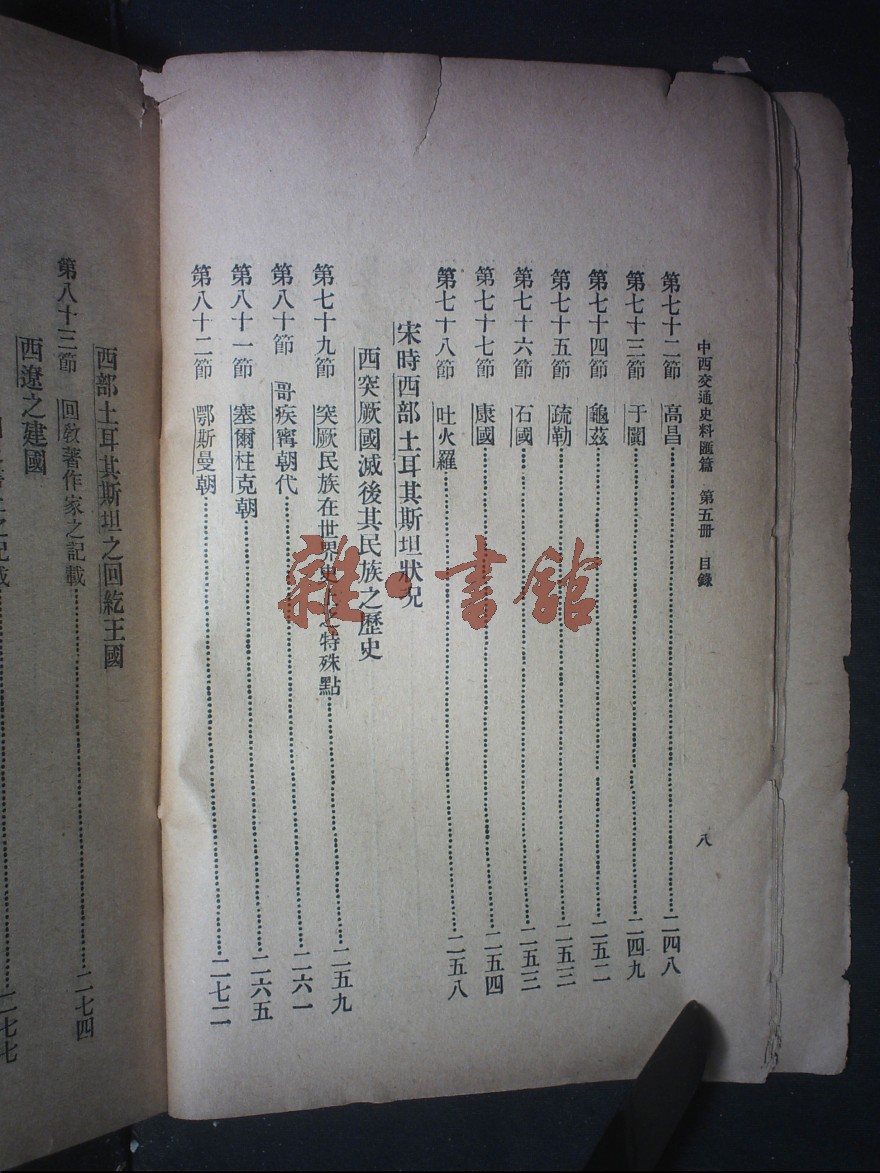 中西交通史料匯篇 第五册 目錄
八
第七十二節 高昌……二四八
第七十三節 于闐……二四九
第七十四節 龜茲……二五二
第七十五節 疏勒……二五三
第七十六節 石國……二五三
第七十七節 康國……二五四
第七十八節 吐火羅……二五八
宋時西部土耳其斯坦狀况
西突厥國滅後其民族之歷史
第七十九節 突厥民族在世界史上之特殊點……二五九
第八十節 哥疾寗朝代……二六一
第八十一節 塞爾柱克朝……二六五
第八十二節 鄂斯曼朝……二七二
西部土耳其斯坦之回紇王國
第八十三節 回教著作家之記載……二七四
西遼之建國
之記載……二七七
雜·書館